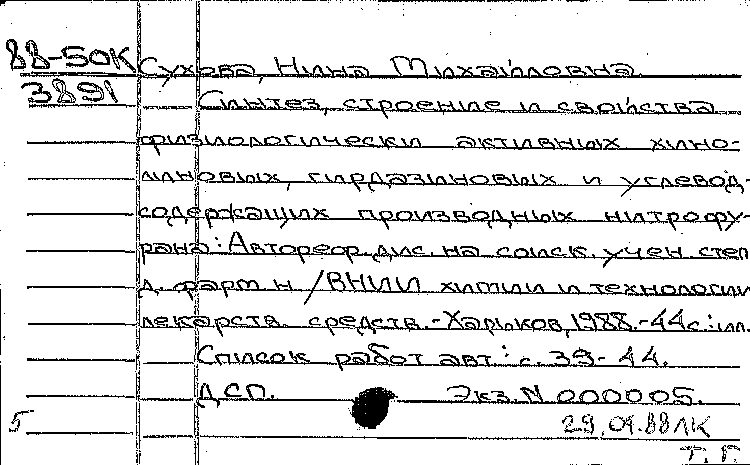 88-50К Сухова, Нина Михайловна
3891 Синтез, строение и свойства
физиологически активных хино-
линовых, пиридазиновых и углевод-
содержащих производных нитрофу-
рана: Автореф. дис. на соиск. учен. степ.
д. фарм. н /ВНИИ химии и технологии
лекарств. средств.-Харьков, 1988.-44с.:ил.
Список работ авт.: с. 39-44.
ДСП. Экз. N 000005.
5 29.09.88 ЛК
Т. Г.